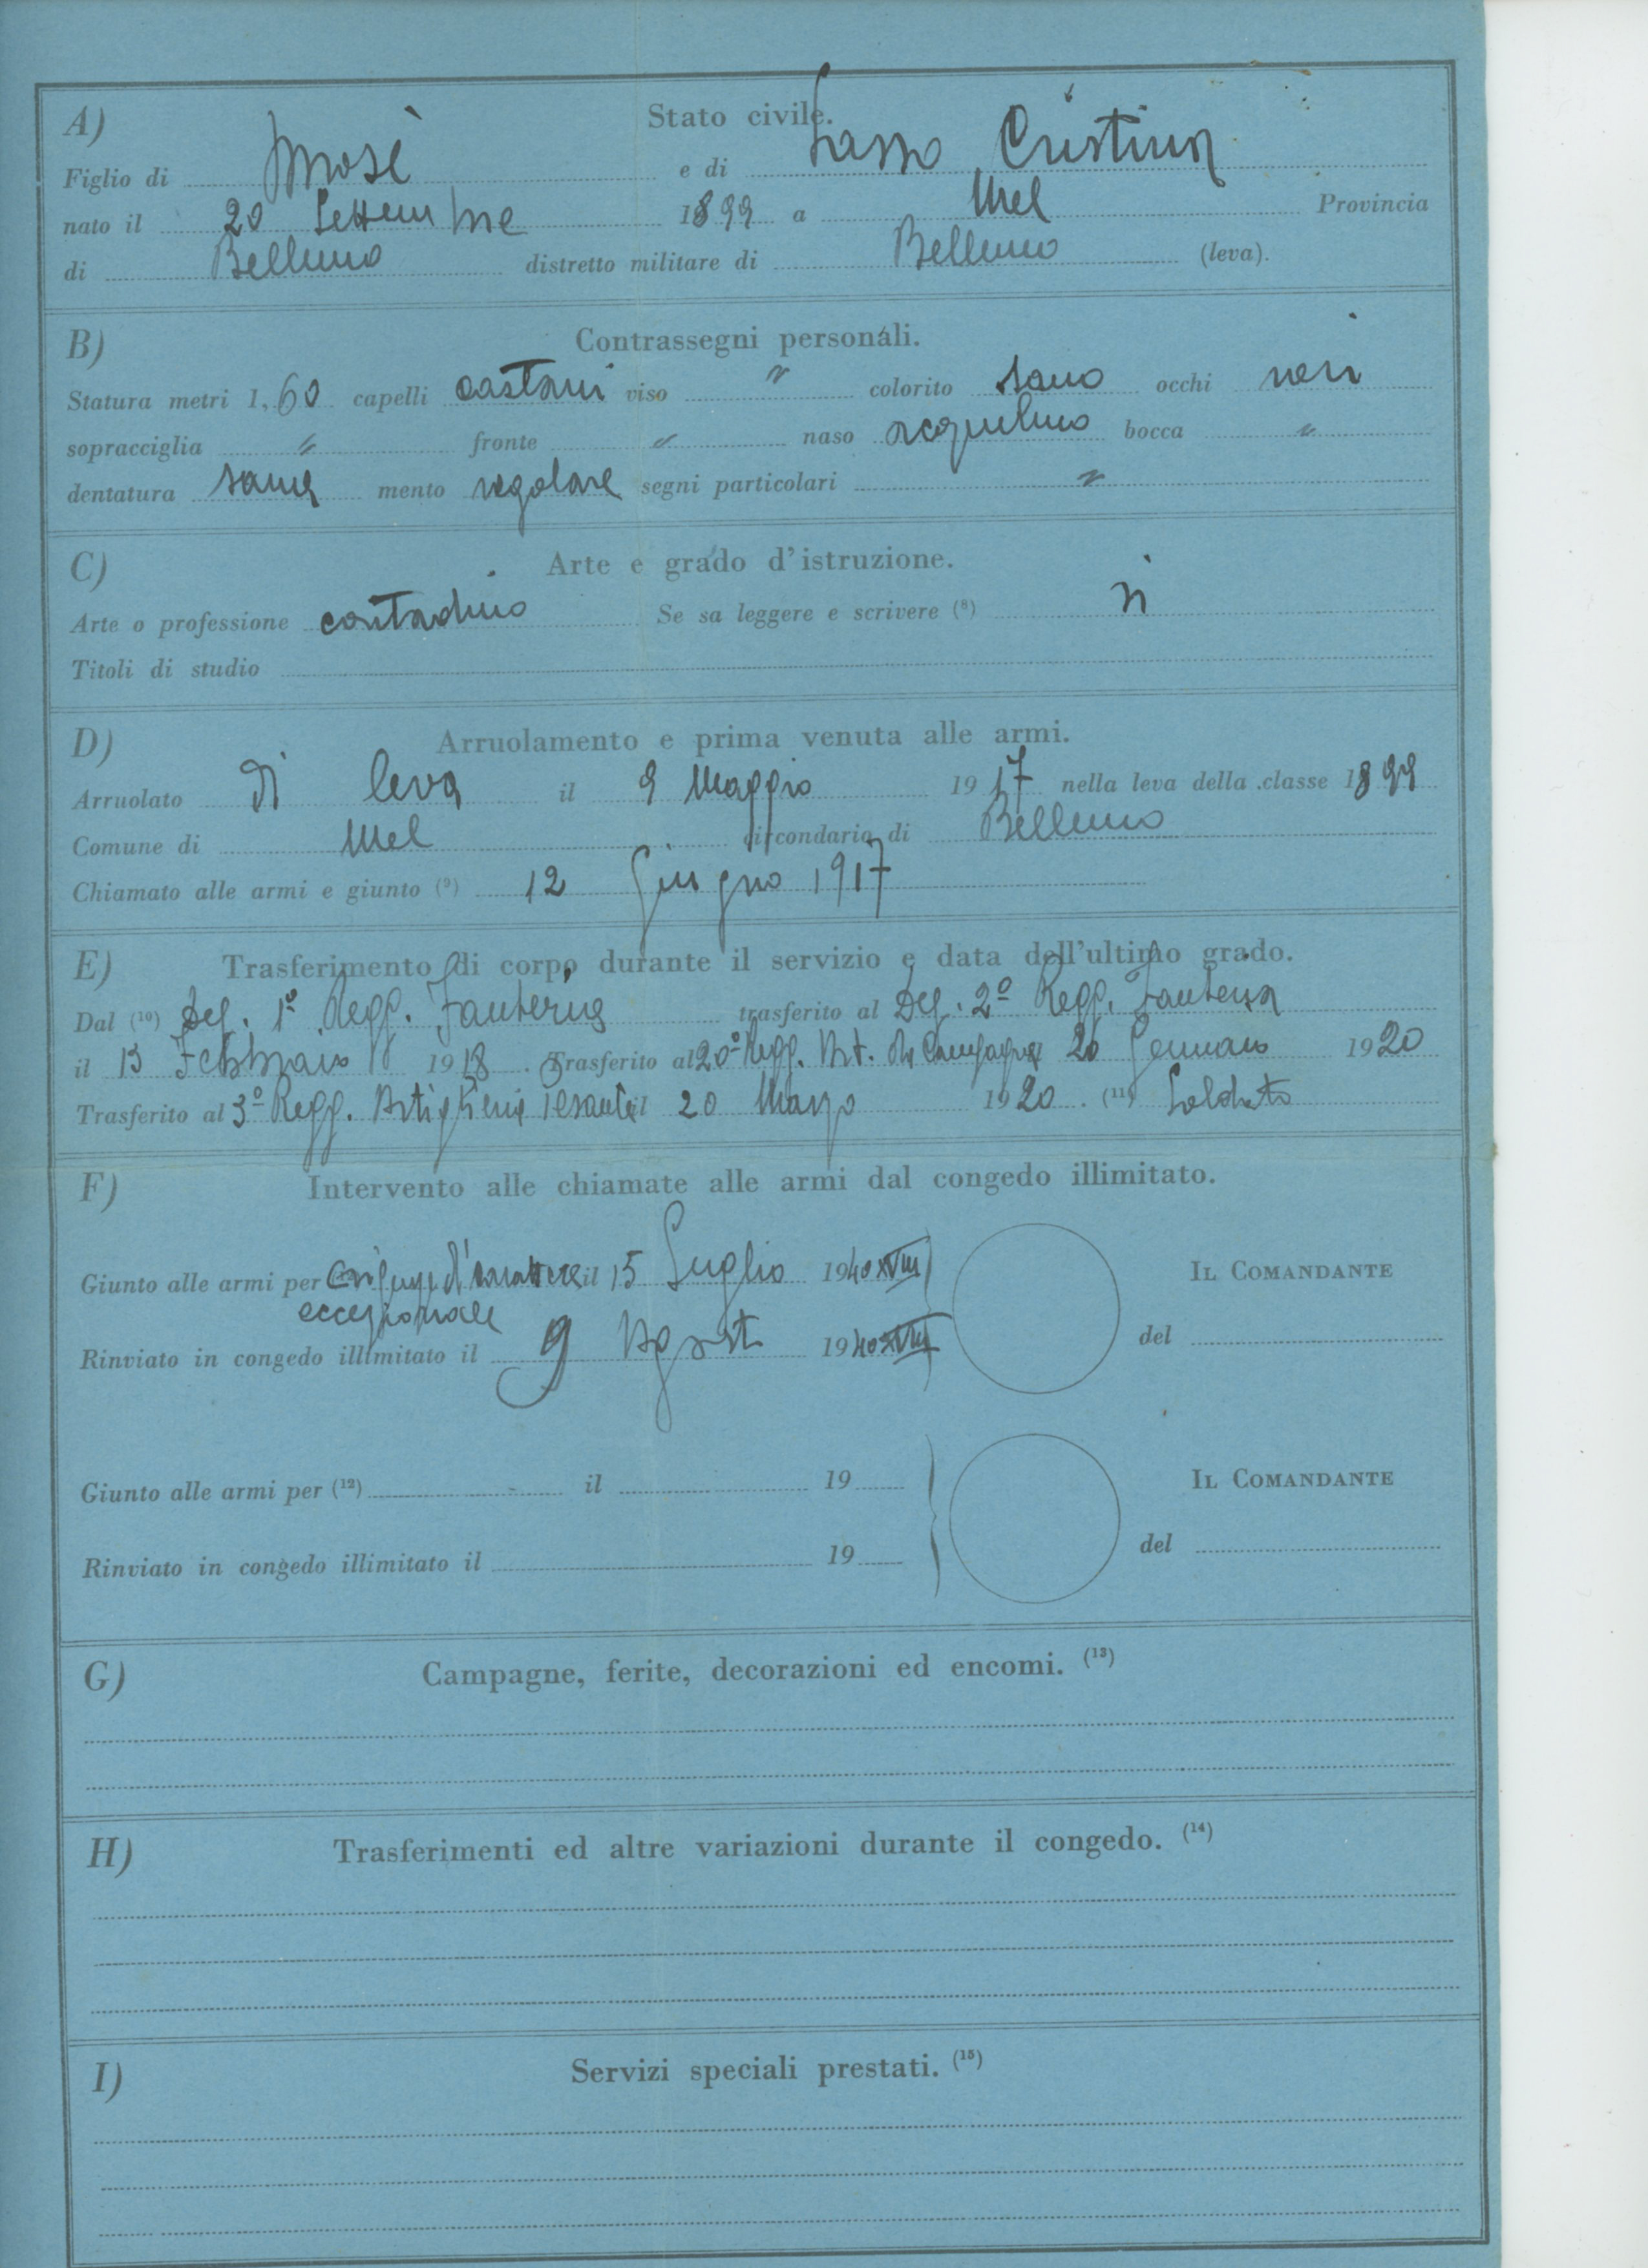 A) Stato civile.
Figlio di Mosè e di Sasso Cristina
nato il 20 Settembre 1899 a Mel Provincia
di Belluno distretto militare di Belluno (leva).
B) Contrassegni personali.
Statura metri 1,60 capelli castani viso " colorito sano occhi neri
sopracciglia " fronte " naso acquilino bocca "
dentatura sana mento regolare segni particolari "
C) Arte e grado d'istruzione.
Arte o professione contadino Se sa leggere e scrivere (8) si
Titoli di studio
D) Arruolamento e prima venuta alle armi.
Arruolato di leva il 9 Maggio 1917 nella leva della classe 1899
Comune di Mel circondario di Belluno
Chiamato alle armi e giunto (9) 12 Giugno 1917
E) Trasferimento di corpo durante il servizio e data dell'ultimo grado.
Dal (10) Dep. 1º Regg. Fanteria trasferito al Dep. 2º Regg. Fanteria
il 13 Febbraio 1918. Trasferito al 20º Regg. Art. da Campagna 26 Gennaio 1920
Trasferito al 3º Regg. Artiglieria Pesante il 20 Marzo 1920. (11) Soldato
F) Intervento alle chiamate alle armi dal congedo illimitato.
Giunto alle armi per esigenze d'carattere il 15 Luglio 1940 XVIII
eccezionale
Rinviato in congedo illimitato il 9 Agosto 1940 XVIII
IL COMANDANTE
del
Giunto alle armi per (12) il 19
Rinviato in congedo illimitato il 19
IL COMANDANTE
del
G) Campagne, ferite, decorazioni ed encomi. (13)
H) Trasferimenti ed altre variazioni durante il congedo. (14)
I) Servizi speciali prestati. (15)